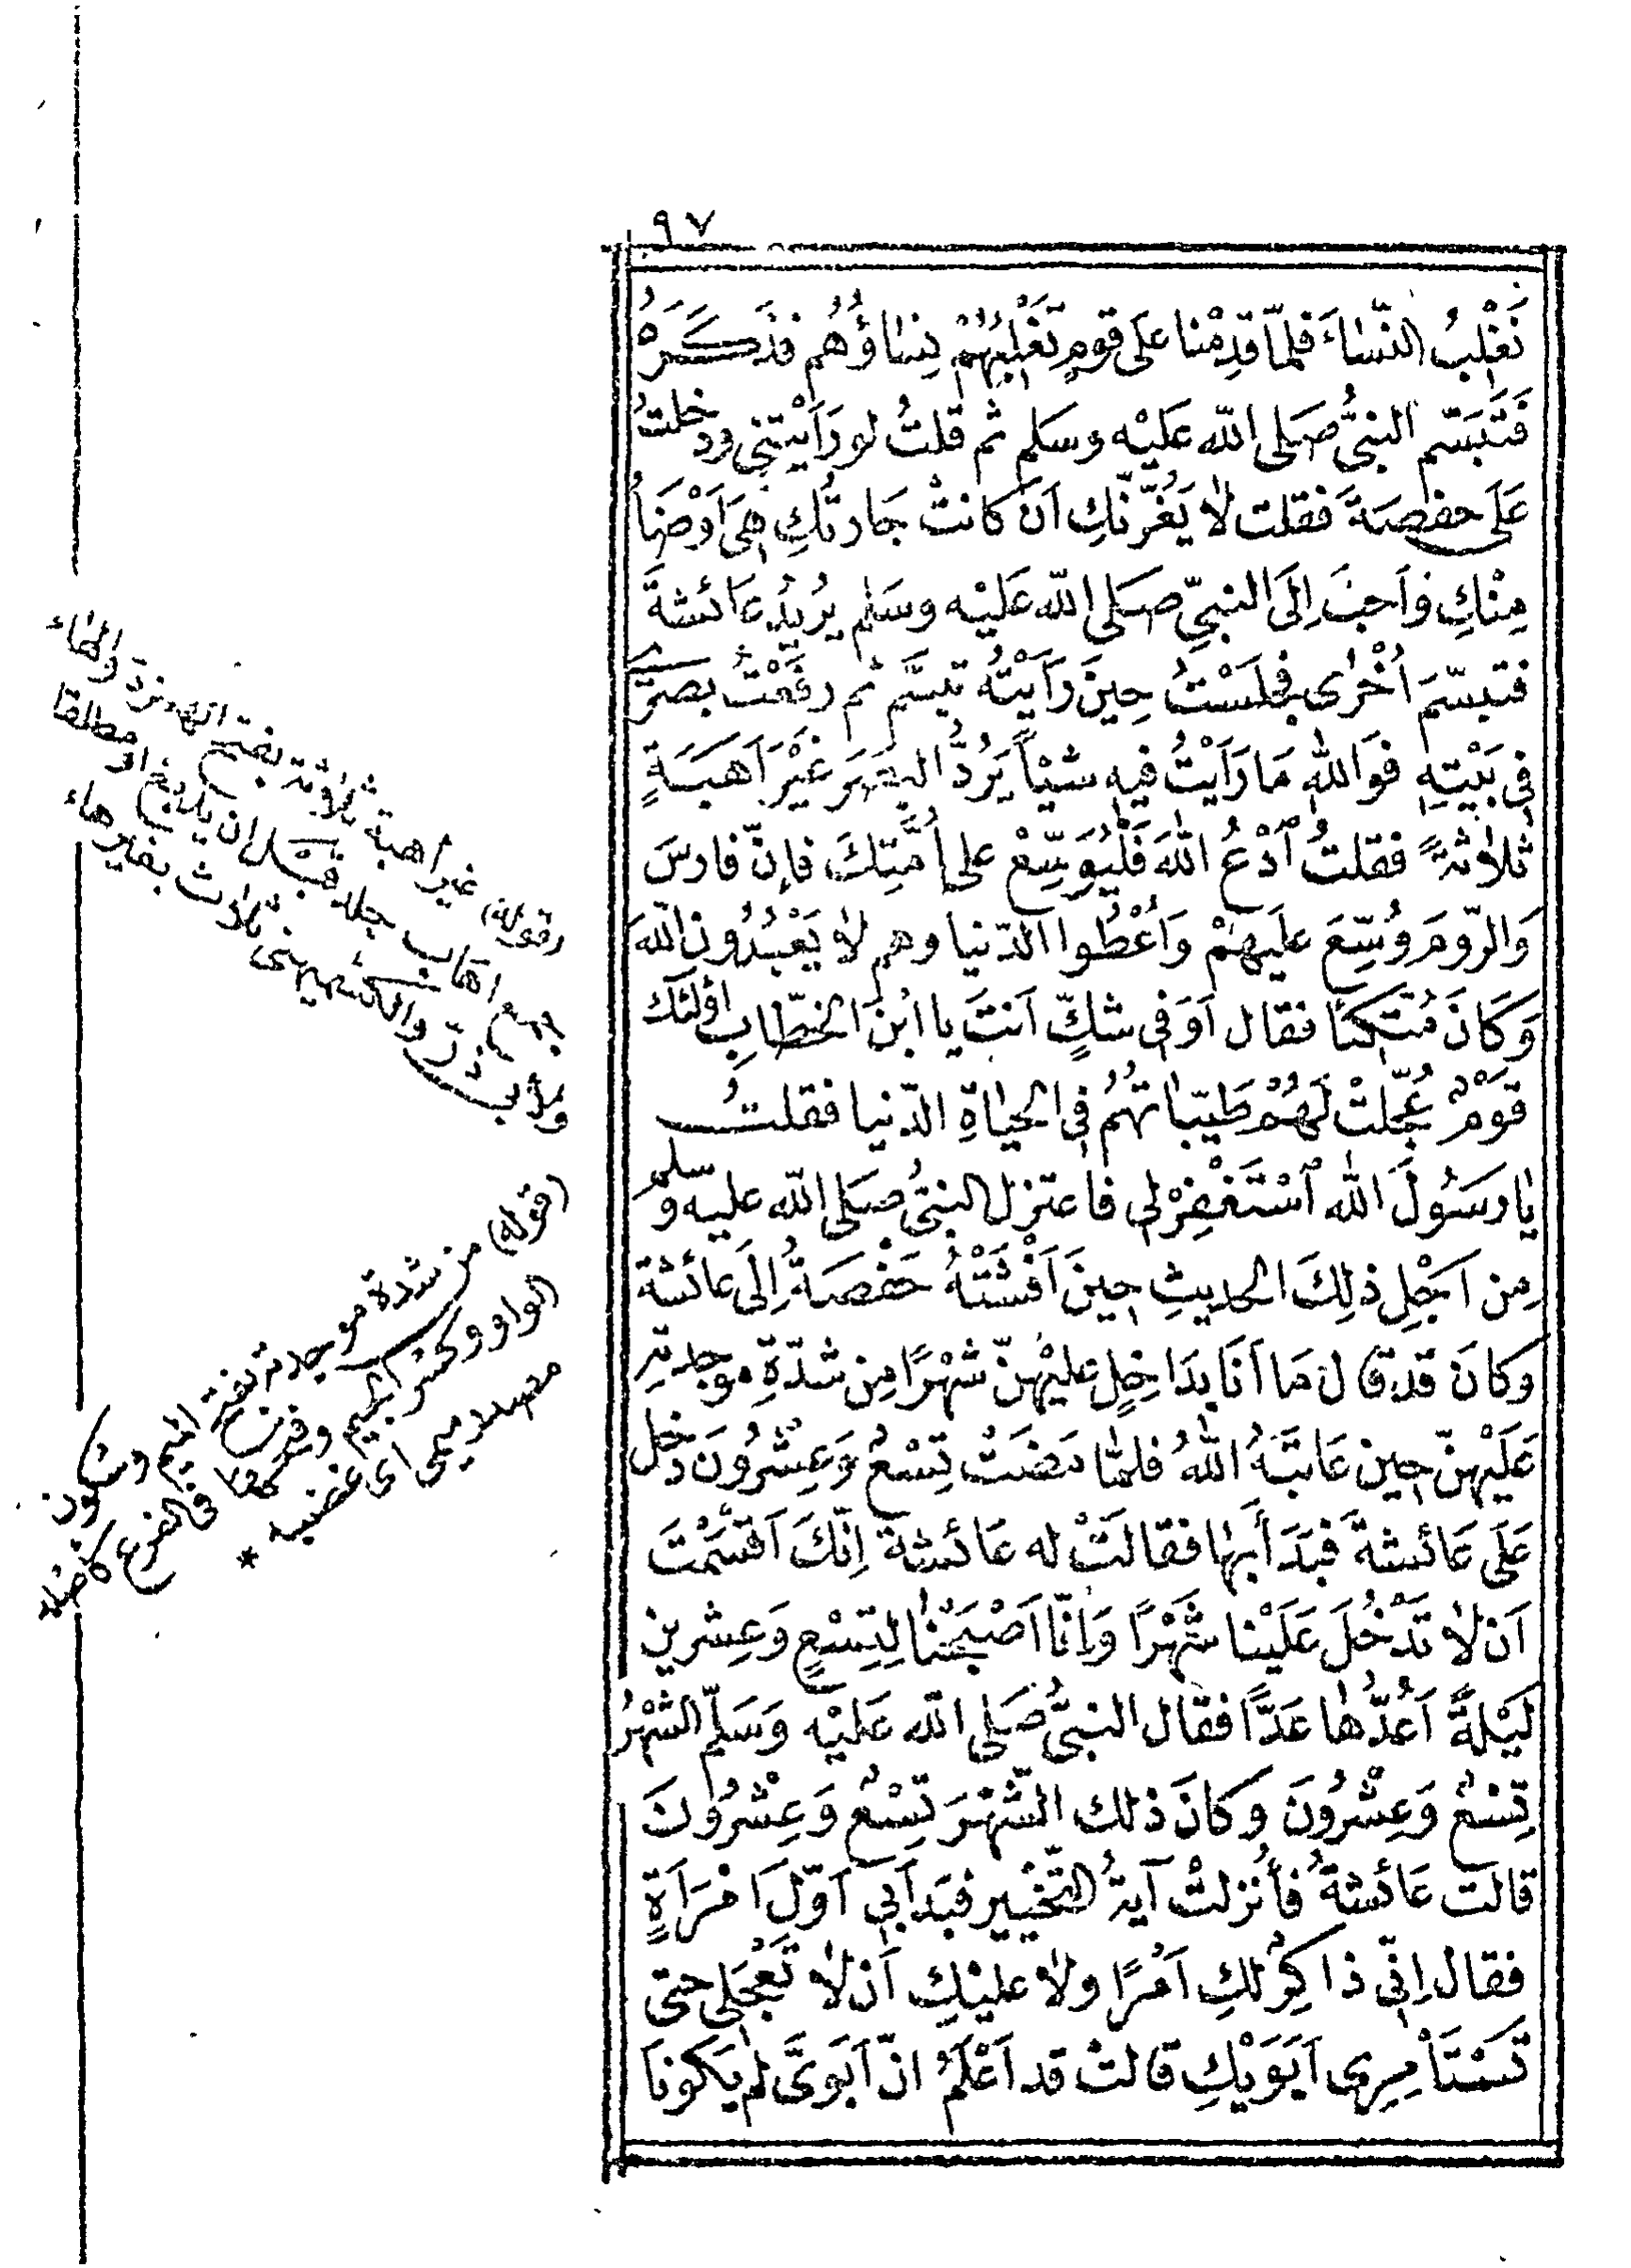 ٩٧
نَغْلِبُ النّسَاءَ فلمّا قدِمْنا على قومٍ تَغْلِبُهُمْ نِسَاؤُهُم فذَكَرَهُ
فَتَبَسّم النبىُّ صَلى الله عَليْه وسَلم ثم قلتُ لو رَأيْتَنِى ودخلتُ
عَلَى حفصَةَ فقلت لَا يَغُرّنّكِ اَنْ كَانتْ جَارتُكِ هِىَ اَوْضَأُ
مِنْكِ وَاَحبَّ اِلَى النبىِّ صَلى الله عَليْه وسَلم يُرِيدُ عَائشةَ
فتبسّمَ اُخْرٰى فجلَسْتُ حِينَ رَاَيْتُهُ تبسَّم ثم رفَعْتُ بصَرِى
فِى بَيْتِهِ فَوَاللهِ مَا رَاَيْتُ فيهِ شيْأً يَرُدُّ البصَرَ غَيْرَ اَهَبَةٍ
ثلَاثةٍ فقلتُ اُدْعُ اللهَ فَلْيُوَسِّعْ على اُمَّتِكَ فإنّ فارسَ
وَالرّومَ وُسِّعَ عليَهمْ وَاُعْطُوا الدّنيا وهم لَا يَعْبُدُونَ اللهَ
وَكَانَ مُتّكِئًا فقال اَوَفِى شكٍّ اَنتَ يا ابْنَ الخطّابِ اولئكَ
قَوْمٌ عُجِّلتْ لَهُمْ طَيّبَاتُهُمْ فِى الحيَاةِ الدّنيا فقلتُ
يَا رسَولَ الله اسْتَغْفِرْ لِى فاعتزل النبىُّ صَلى الله عليه وسلم
مِن اَجْلِ ذلِكَ الحديثِ حِينَ اَفْشَتْهُ حَفْصَةُ اِلَى عَائشة
وَكانَ قد قال مَا اَنَا بدَاخِلٍ عليْهِنّ شَهْرًا مِن شدّةِ موجدتِه
عَلَيْهِنّ حِين عَاتَبَهُ اللهُ فلمّا مَضَتْ تِسْعٌ وَعِشْرُونَ دَخل
عَلَى عَائشةَ فبَدَأ بها فقالتْ له عَائشة اِنّكَ اَقسَمْتَ
اَن لَا تَدْخُلَ عَلَيْنا شَهْرًا وَاِنّا اَصْبَحْنَا لِتِسْعٍ وَعِشرين
لَيْلةً اَعُدُّهَا عَدًّا فقال النبىُّ صَلى الله عَليْه وَسَلّم الشهْرُ
تِسْعٌ وَعِشْرُونَ وَكانَ ذلك الشّهْرَ تِسْعٌ وَعِشْرُونَ
قالت عَائشةُ فأُنزلتْ آيةُ التّخْيير فبَدَأ بِى اَوّلَ امْرَأَةٍ
فقال اِنّى ذاكِرٌ لكِ اَمْرًا ولَا عليْكِ اَن لَا تَعْجَلى حتى
تَسْتَأْمِرِى اَبَوَيْكِ قالتْ قد اَعْلَمُ انّ اَبَوَىَّ لم يَكونَا
(قوله) غير اهبة ثلاثة بفتح الهمزة والهاء
جمع اهاب جلد قبل ان يدبغ او مطلقا
ولأبى ذرّ والكشميهنى ثلاث بغير هاء
(قوله) من شدة موجدته بفتح الميم وسكون
الواو وكسر الجيم وفتحها فى الفرع كأصله
مصدر ميمى اى غضبه *